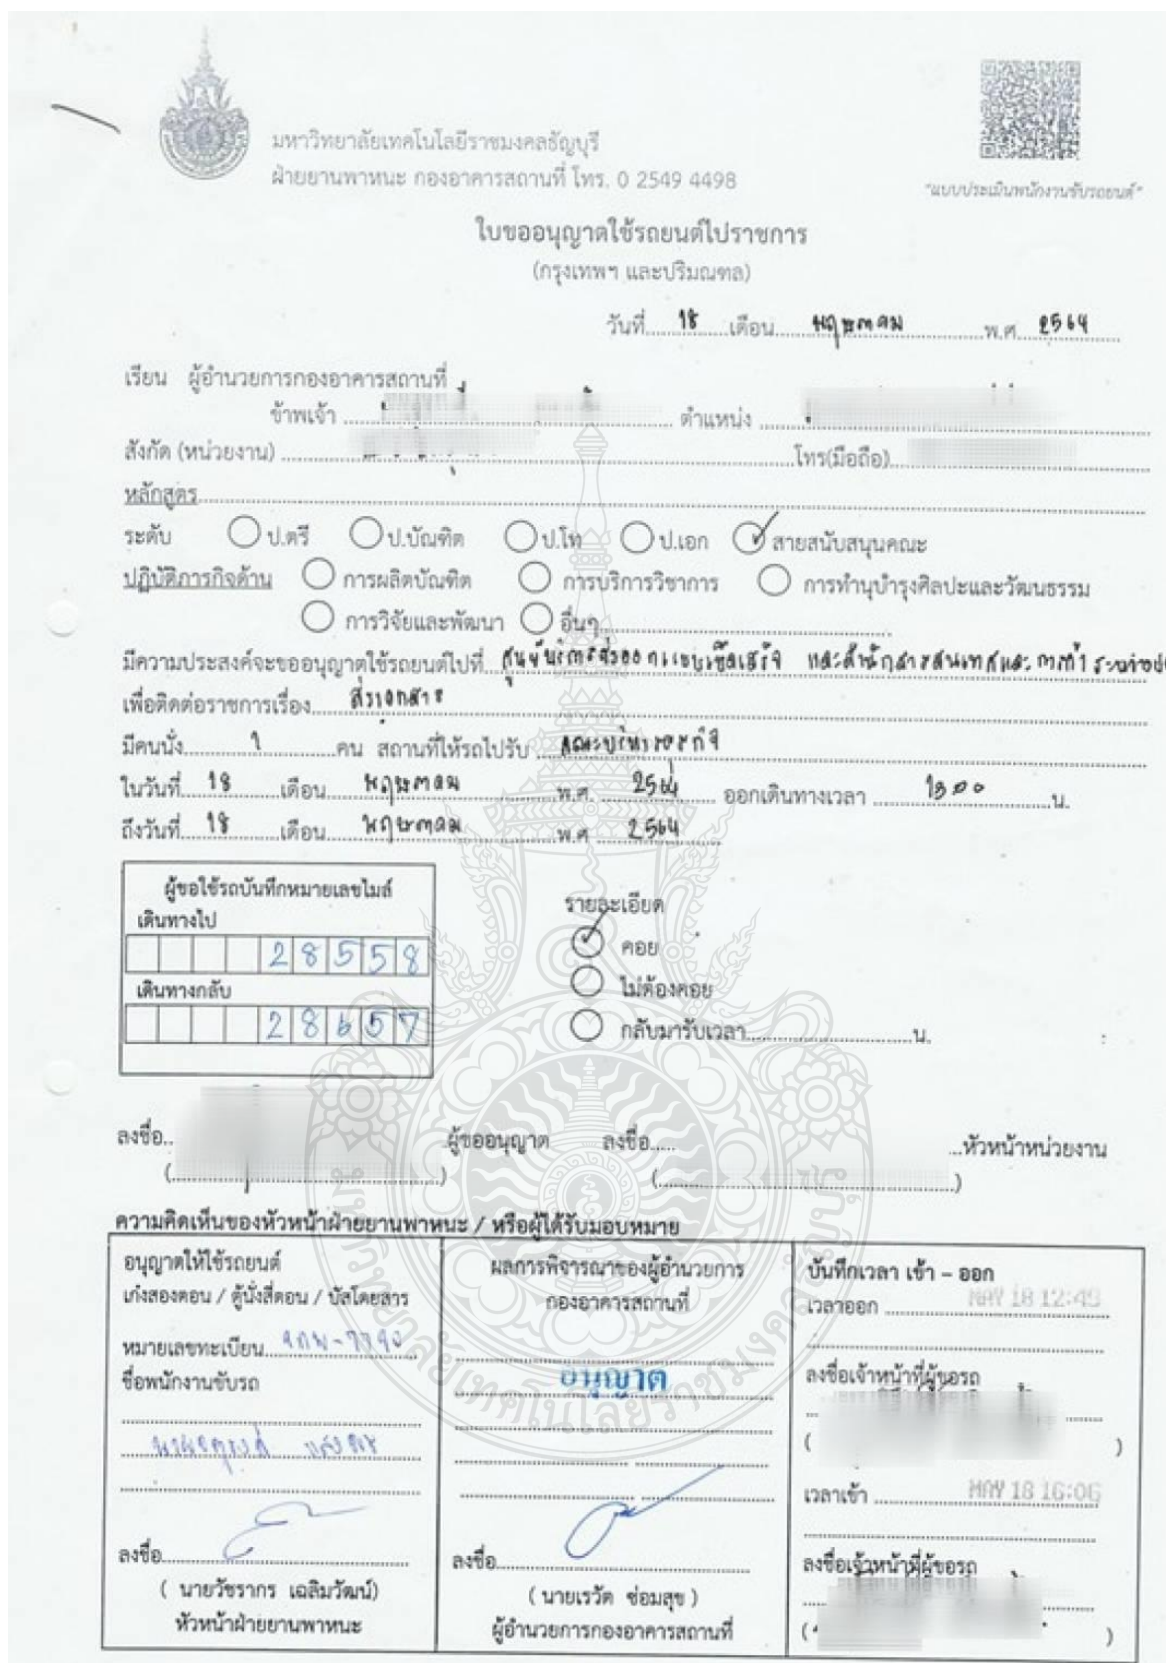 มหาวิทยาลัยเทคโนโลยีราชมงคลธัญบุรี
ฝ่ายยานพาหนะ กองอาคารสถานที่ โทร. 0 2549 4498
"แบบประเมินพนักงานขับรถยนต์"
ใบขออนุญาตใช้รถยนต์ไปราชการ
(กรุงเทพฯ และปริมณฑล)
วันที่ 18 เดือน พฤษภาคม พ.ศ. 2564
เรียน ผู้อำนวยการกองอาคารสถานที่
ข้าพเจ้า ตำแหน่ง
สังกัด (หน่วยงาน) โทร(มือถือ)
หลักสูตร
ระดับ ป.ตรี ป.บัณฑิต ป.โท ป.เอก สายสนับสนุนคณะ
ปฏิบัติภารกิจด้าน การผลิตบัณฑิต การบริการวิชาการ การทำนุบำรุงศิลปะและวัฒนธรรม
การวิจัยและพัฒนา อื่นๆ
มีความประสงค์จะขออนุญาตใช้รถยนต์ไปที่ เบ็ดเสร็จ
เพื่อติดต่อราชการเรื่อง ส่งเอกสาร
มีคนนั่ง 1 คน สถานที่ให้รถไปรับ คณะบริหารธุรกิจ
ในวันที่ 18 เดือน พฤษภาคม พ.ศ 2564 ออกเดินทางเวลา 1300 น.
ถึงวันที่ 18 เดือน พฤษภาคม พ.ศ 2564
ผู้ขอใช้รถบันทึกหมายเลขไมล์
เดินทางไป
28558
เดินทางกลับ
28657
รายละเอียด
คอย
ไม่ต้องคอย
กลับมารับเวลา น.
ลงชื่อ ผู้ขออนุญาต ลงชื่อ หัวหน้าหน่วยงาน
ความคิดเห็นของหัวหน้าฝ่ายยานพาหนะ / หรือผู้ได้รับมอบหมาย
อนุญาตให้ใช้รถยนต์
เก๋งสองตอน / ตู้นั่งสี่ตอน / บัสโดยสาร
หมายเลขทะเบียน
ชื่อพนักงานขับรถ
ลงชื่อ
( นายวัชรากร เฉลิมวัฒน์)
หัวหน้าฝ่ายยานพาหนะ
ผลการพิจารณาของผู้อำนวยการ
กองอาคารสถานที่
อนุญาต
ลงชื่อ
( นายเรวัด ซ่อมสุข )
ผู้อำนวยการกองอาคารสถานที่
บันทึกเวลา เข้า – ออก
เวลาออก MAY 18 12:49
ลงชื่อเจ้าหน้าที่ผู้ขอรถ
เวลาเข้า MAY 18 16:06
ลงชื่อเจ้าหน้าที่ผู้ขอรถ
มหาวิทยาลัยเทคโนโลยีราชมงคลธัญบุรี